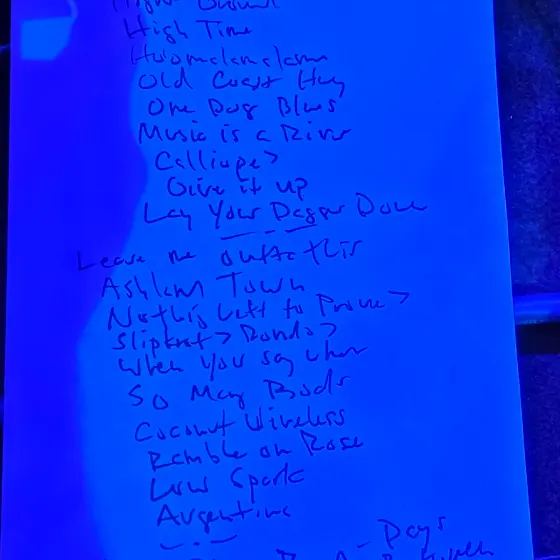 High Time
Hoomalamalama
Old Coast Hwy
One Dog Blues
Music is a River
Calliope >
Give it up
Lay Your Dagger Down
Leave me outta this
Ashland Town
Nothing Left to Prove >
Slipknot > Rondo >
When you say when
So Many Roads
Coconut Wireless
Ramble on Rose
Low Spark
Argentina
Days